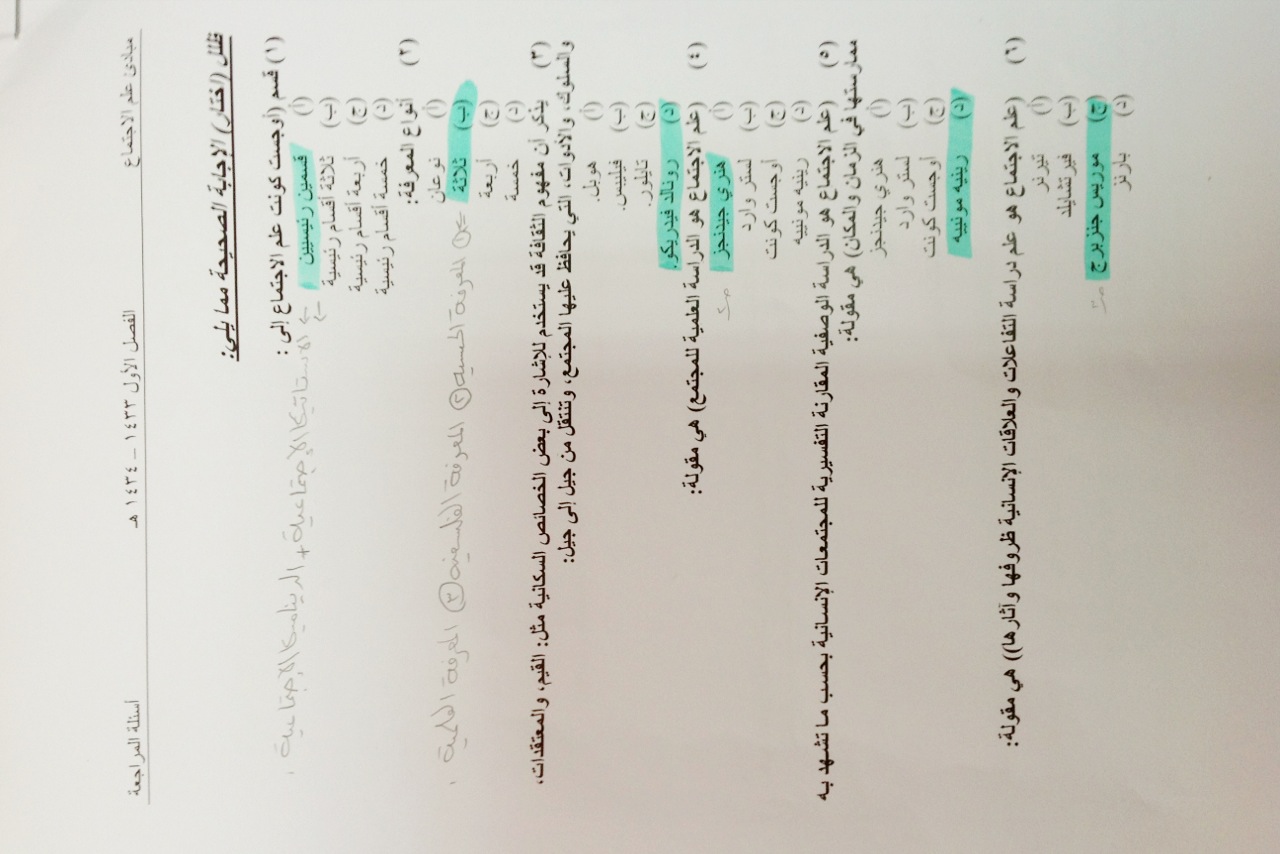 مبادئ علم الاجتماع الفصل الأول ١٤٣٣ – ١٤٣٤ هـ أسئلة المراجعة
ظلل (اختار) الإجابة الصحيحة مما يلي:
(١) قسم (أوجست كونت علم الاجتماع إلى :
(أ) قسمين رئيسيين
← الاستاتيكا الإجتماعية + الديناميكا الإجتماعية .
(ب) ثلاثة أقسام رئيسية
(ج) أربعة أقسام رئيسية
(د) خمسة أقسام رئيسية
(٢) أنواع المعرفة:
(أ) نوعان
(ب) ثلاثة
① المعرفة الحسية ② المعرفة الفلسفية ③ المعرفة العلمية .
(ج) أربعة
(د) خمسة
(٣) يذكر أن مفهوم الثقافة قد يستخدم للإشارة إلى بعض الخصائص السكانية مثل: القيم، والمعتقدات،
والسلوك، والأدوات، التي يحافظ عليها المجتمع، وتنتقل من جيل إلى جيل:
(أ) هوبل.
(ب) فيليبس.
(ج) تايلور.
(د) رونالد فيدريكو.
(٤) (علم الاجتماع هو الدراسة العلمية للمجتمع) هي مقولة:
(أ) هنري جيدنجز
(ب) لستر وارد
(ج) أوجست كونت
(د) رينيه مونييه
(٥) (علم الاجتماع هو الدراسة الوصفية المقارنة التفسيرية للمجتمعات الإنسانية بحسب ما تشهد به
ممارستها في الزمان والمكان) هي مقولة:
(أ) هنري جيدنجز
(ب) لستر وارد
(ج) أوجست كونت
(د) رينيه مونييه
(٦) (علم الاجتماع هو علم دراسة التفاعلات والعلاقات الإنسانية ظروفها وآثارها)) هي مقولة:
(أ) تيرنر
(ب) فيرتشايلد
(ج) موريس جنزبرج
(د) بارنز